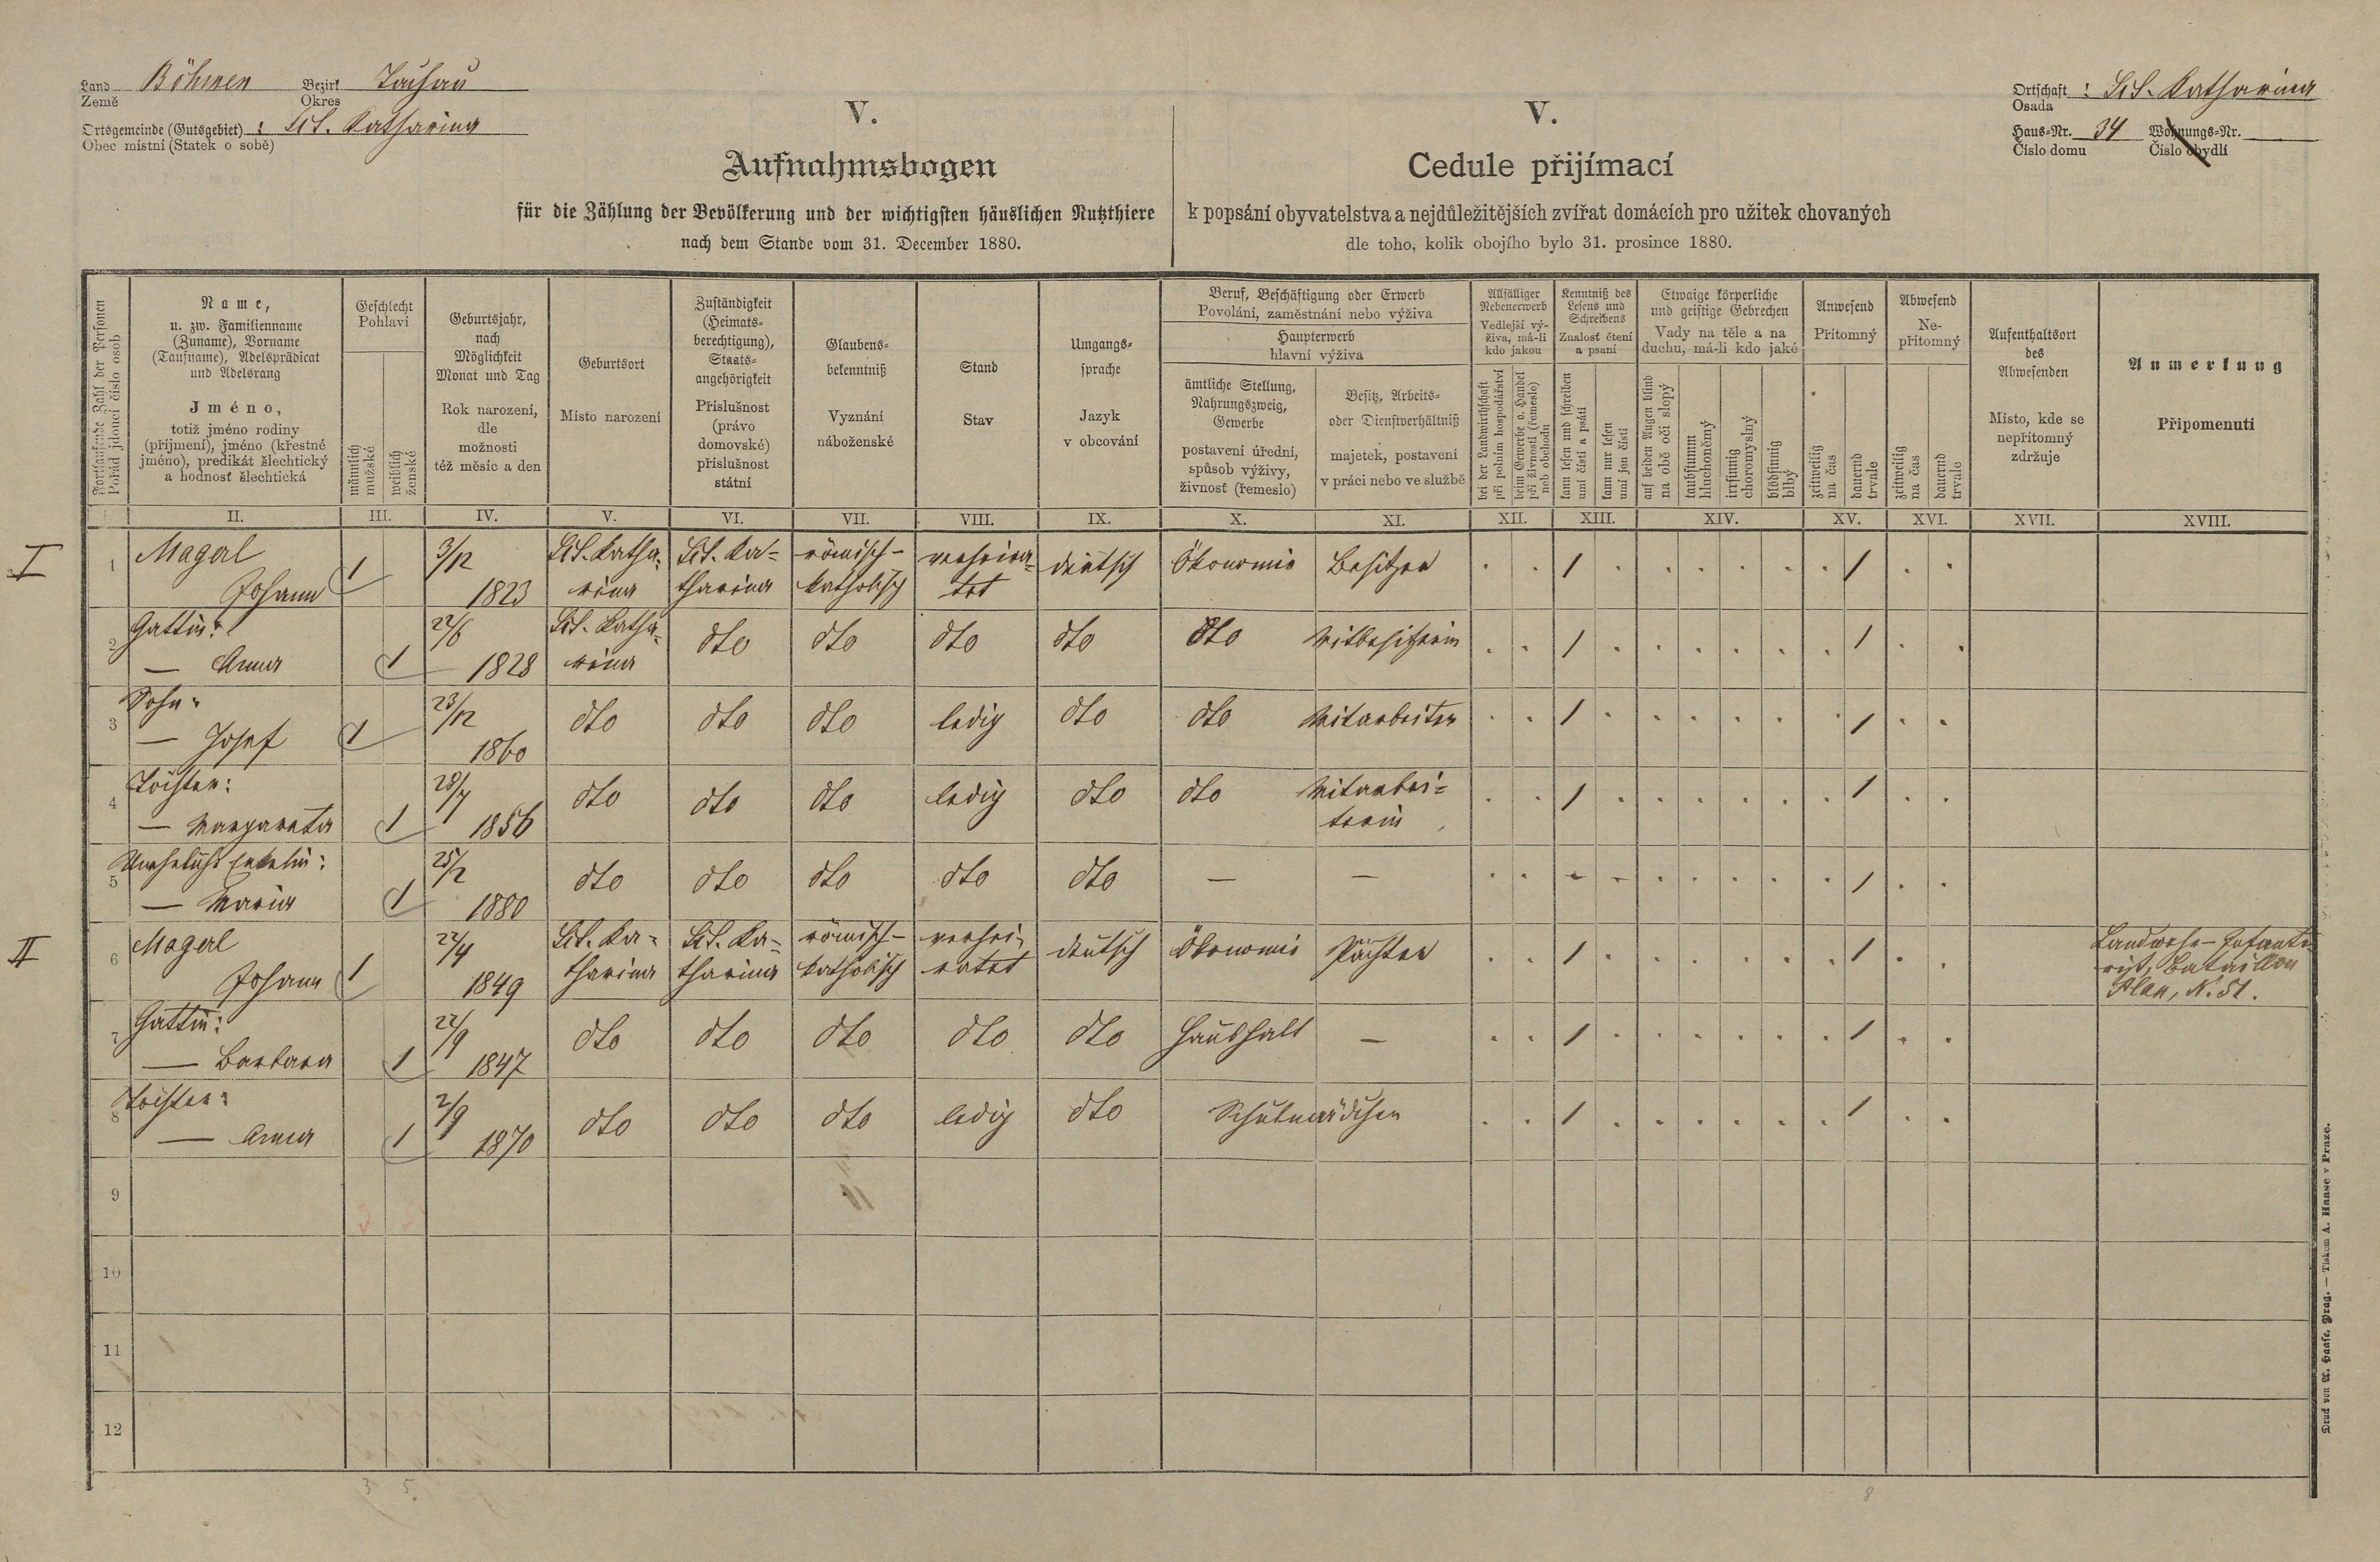 Land Böhmen Bezirk Tachau
Země Okres
Ortsgemeinde (Gutsgebiet): Sct. Katharina
Obec místní (Statek o sobě)
Ortschaft: Sct. Katharina
Osada
Haus-Nr. 34 Wohnungs-Nr.
Číslo domu Číslo obydlí
V.
Aufnahmsbogen
für die Zählung der Bevölkerung und der wichtigsten häuslichen Nutzthiere
nach dem Stande vom 31. December 1880.
V.
Cedule přijímací
k popsání obyvatelstva a nejdůležitějších zvířat domácích pro užitek chovaných
dle toho, kolik obojího bylo 31. prosince 1880.
Fortlaufende Zahl der Personen
Pořád jdoucí číslo osob
Name,
u. zw. Familienname
(Zuname), Vorname
(Taufname), Adelsprädicat
und Adelsrang
Jméno,
totiž jméno rodiny
(příjmení), jméno (křestné
jméno), predikát šlechtický
a hodnosť šlechtická
Geschlecht
Pohlaví
männlich
mužské
weiblich
ženské
Geburtsjahr,
nach
Möglichkeit
Monat und Tag
Rok narození,
dle
možnosti
též měsíc a den
Geburtsort
Místo narození
Zuständigkeit
(Heimats-
berechtigung),
Staats-
angehörigkeit
Příslušnost
(právo
domovské)
příslušnost
státní
Glaubens-
bekenntniß
Vyznání
náboženské
Stand
Stav
Umgangs-
sprache
Jazyk
v obcování
Beruf, Beschäftigung oder Erwerb
Povolání, zaměstnání nebo výživa
Haupterwerb
hlavní výživa
ämtliche Stellung,
Nahrungszweig,
Gewerbe
postavení úřední,
spůsob výživy,
živnosť (řemeslo)
Besitz, Arbeits-
oder Dienstverhältniß
majetek, postavení
v práci nebo ve službě
Allfälliger
Nebenerwerb
Vedlejší vý-
živa, má-li
kdo jakou
bei der Landwirthschaft
při polním hospodářství
beim Gewerbe o. Handel
při živnosti (řemeslo)
neb obchodu
Kenntniß des
Lesens und
Schreibens
Znalosť čtení
a psaní
kann lesen und schreiben
umí čísti a psáti
kann nur lesen
umí jen čísti
Etwaige körperliche
und geistige Gebrechen
Vady na těle a na
duchu, má-li kdo jaké
auf beiden Augen blind
na obě oči slepý
taubstumm
hluchoněmý
irrsinnig
choromyslný
blödsinnig
blbý
Anwesend
Přítomný
zeitweilig
na čas
dauernd
trvale
Abwesend
Ne-
přítomný
zeitweilig
na čas
dauernd
trvale
Aufenthaltsort
des
Abwesenden
Místo, kde se
nepřítomný
zdržuje
Anmerkung
Připomenutí
II. III. IV. V. VI. VII. VIII. IX. X. XI. XII. XIII. XIV. XV. XVI. XVII. XVIII.
I 1 Magerl Johann 1 3/12 1823 Sct. Katharina Sct. Ka-tharina römisch-katholisch verheira-tet deutsch Ökonomie Besitzer 1 1
2 Gattin: — Anna 1 22/6 1828 Sct. Katharina dto dto dto dto dto Mitbesitzerin 1 1
3 Sohn: — Josef 1 23/12 1860 dto dto dto ledig dto dto Mitarbeiter 1 1
4 Tochter: — Margareta 1 28/7 1856 dto dto dto ledig dto dto Mitarbei-terin 1 1
5 Uneheliche Enkelin: — Maria 1 25/2 1880 dto dto dto dto dto — — 1
II 6 Magerl Johann 1 22/4 1849 Sct. Ka-tharina Sct. Ka-tharina römisch-katholisch verhei-ratet deutsch Ökonomie Pächter 1 1 Landwehr-Infante-rist, Bataillon Plan, N. 51.
7 Gattin: — Barbara 1 22/9 1847 dto dto dto dto dto Haushalt — 1 1
8 Tochter: — Anna 1 2/9 1870 dto dto dto ledig dto Schulmädchen 1 1
9
10
11
12
3 5. 8
Druck von A. Haase, Prag. — Tiskem A. Haase v Praze.